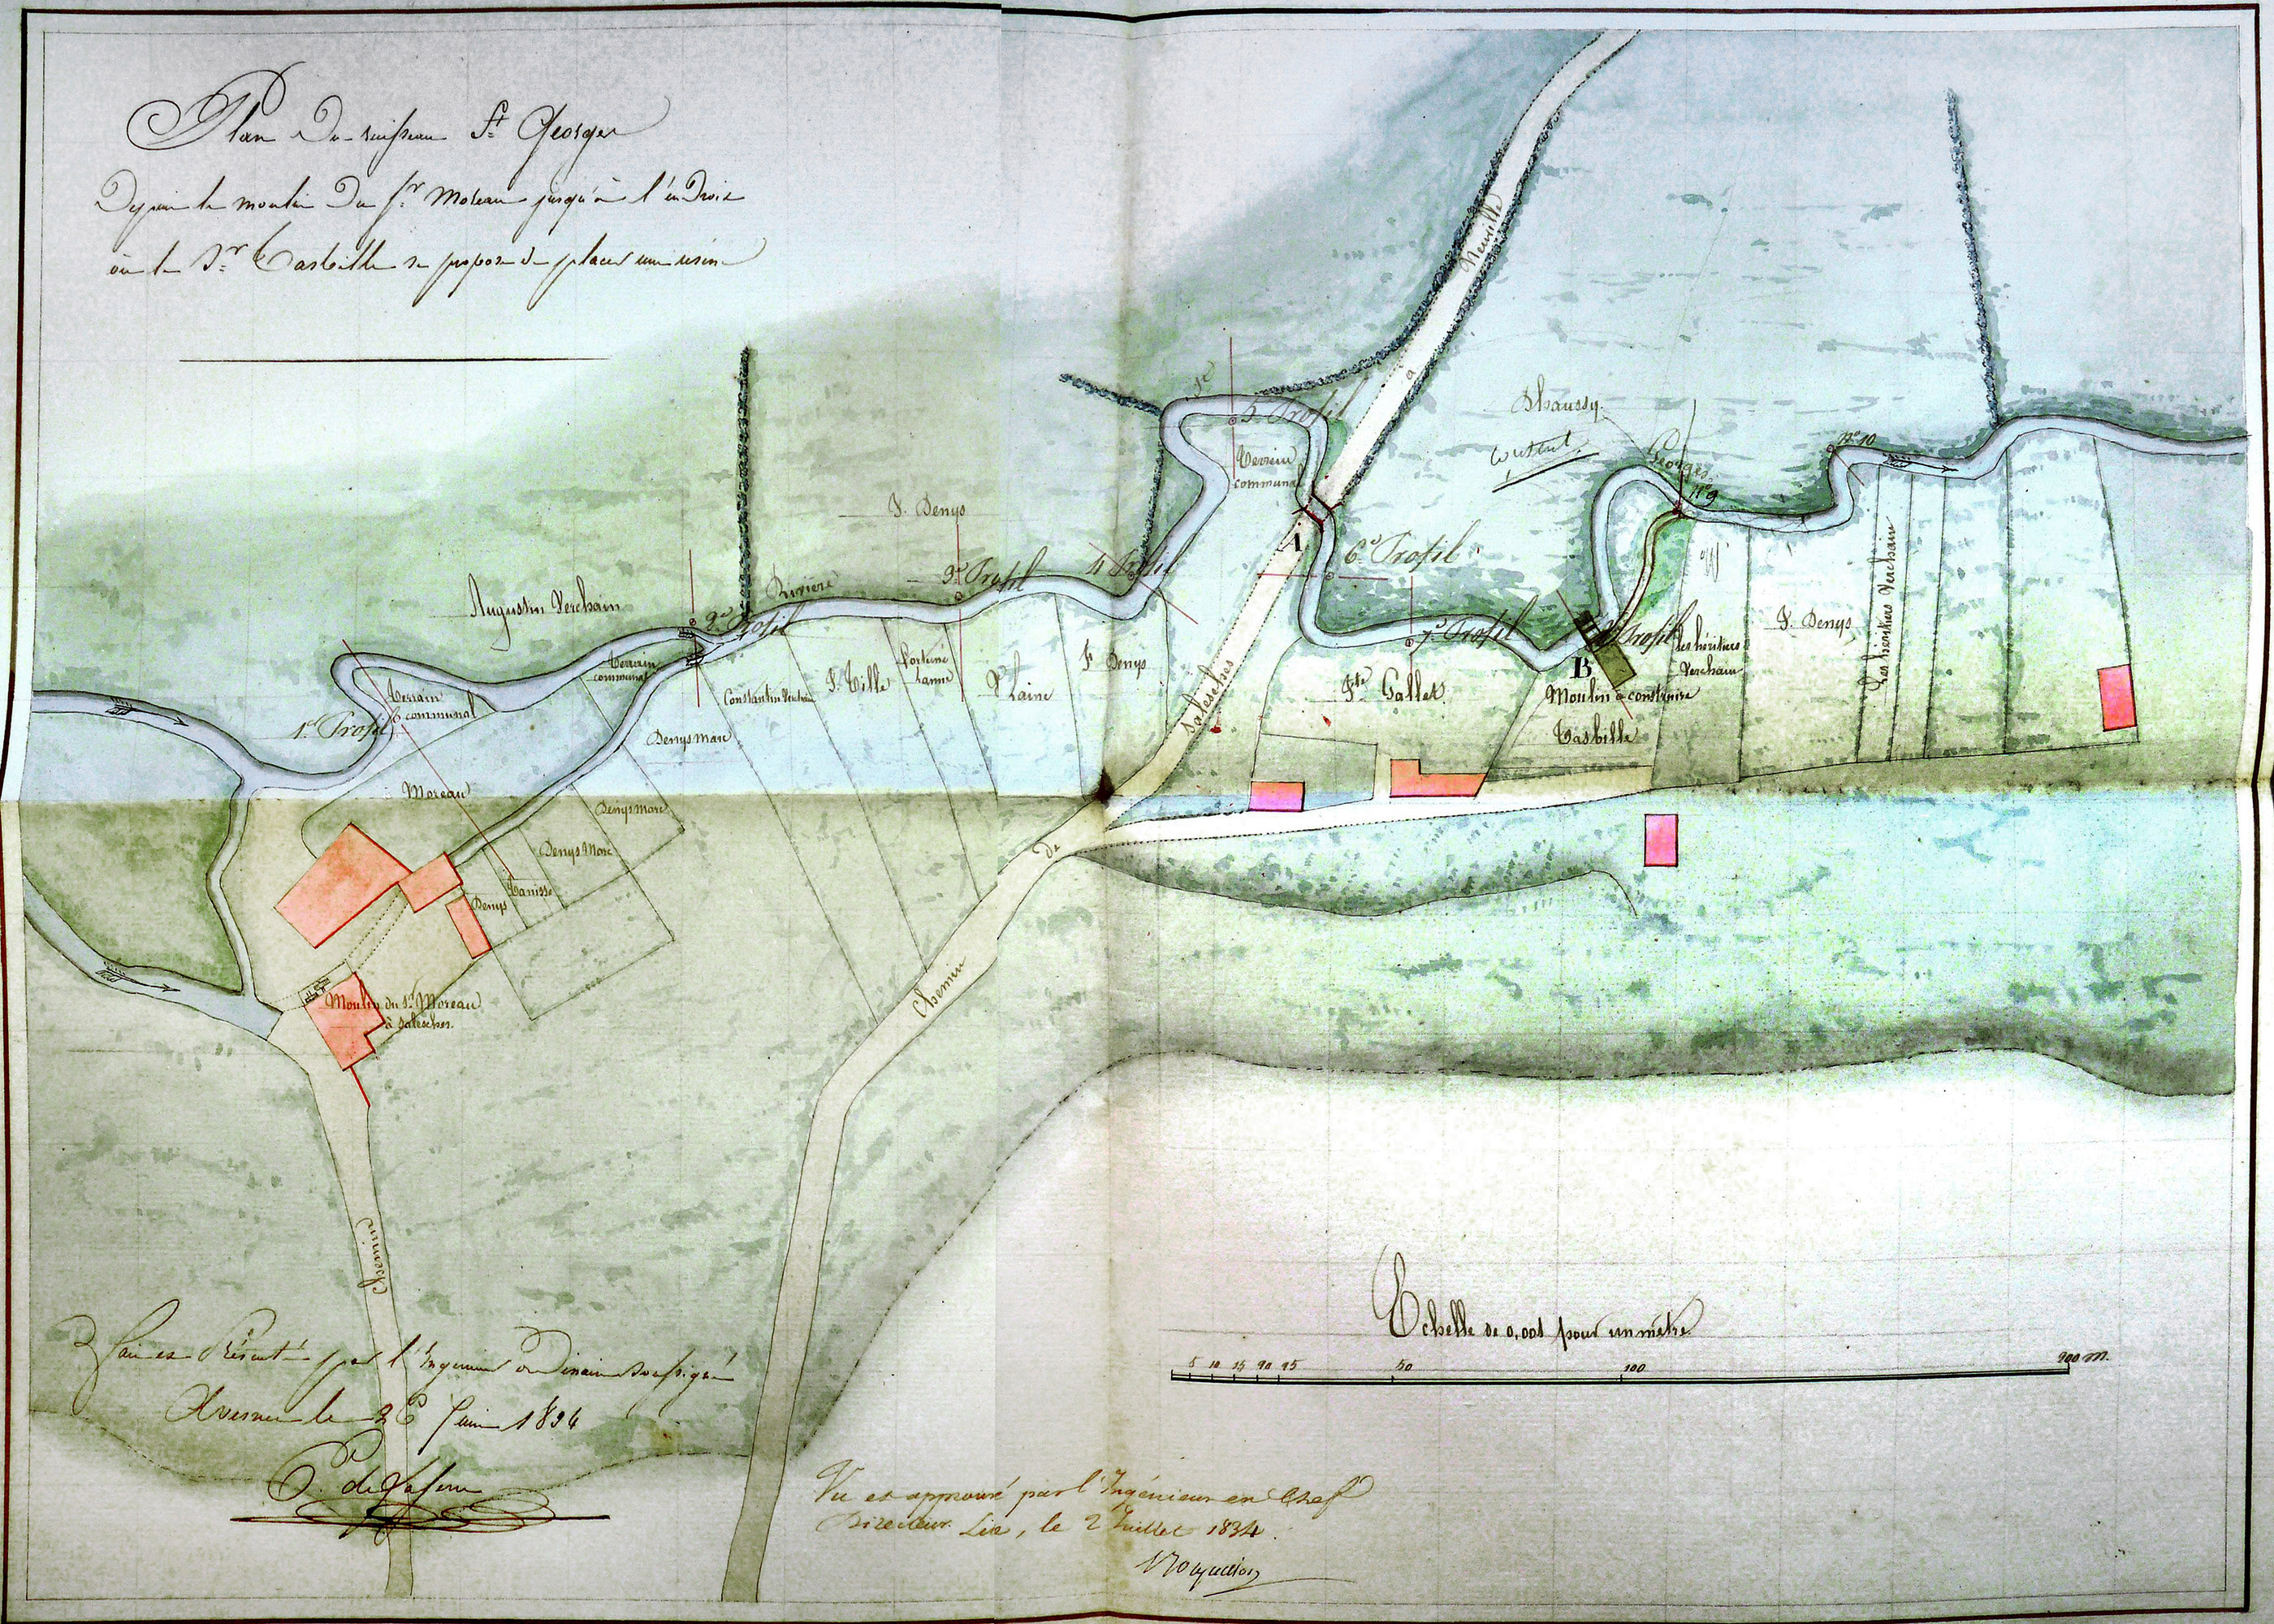 Plan Du ruisseau St Georges
Depuis le moulin Du Sr Moreau jusqu'à l'endroit
où le Sr Tasbille se propose de placer une usine
Neuville
à
Salesches
de
Chemin
Chemin
Shaussy
St
Georges
Rivière
5e Profil
Terrain
communal
A
6e Profil
7e Profil
8e Profil
B
No 9
No 10
F. Denys
3e Profil
4e Profil
Augustin Verchain
2e Profil
Terrain
communal
1er Profil
Terrain
communal
Constantin Verchain
F. Tille
Fortuné
Lanne
V. Laine
F. Denys
Denys Marc
Denys Marc
Denys Marc
Tanisse
Denys
Moreau
Moulin du Sr Moreau
à Salesches
Fté Gallet
Moulin à construire
Tasbille
les héritiers
Verchain
F. Denys
Les héritiers Verchain
Echelle de 0,001 pour un mètre
5 10 15 20 25 50 100 200 m.
Fait et Présenté par l'Ingénieur ordinaire soussigné
Avesnes le 26 Juin 1834
Vu et approuvé par l'Ingénieur en Chef
Directeur. Lille, le 2 Juillet 1834.